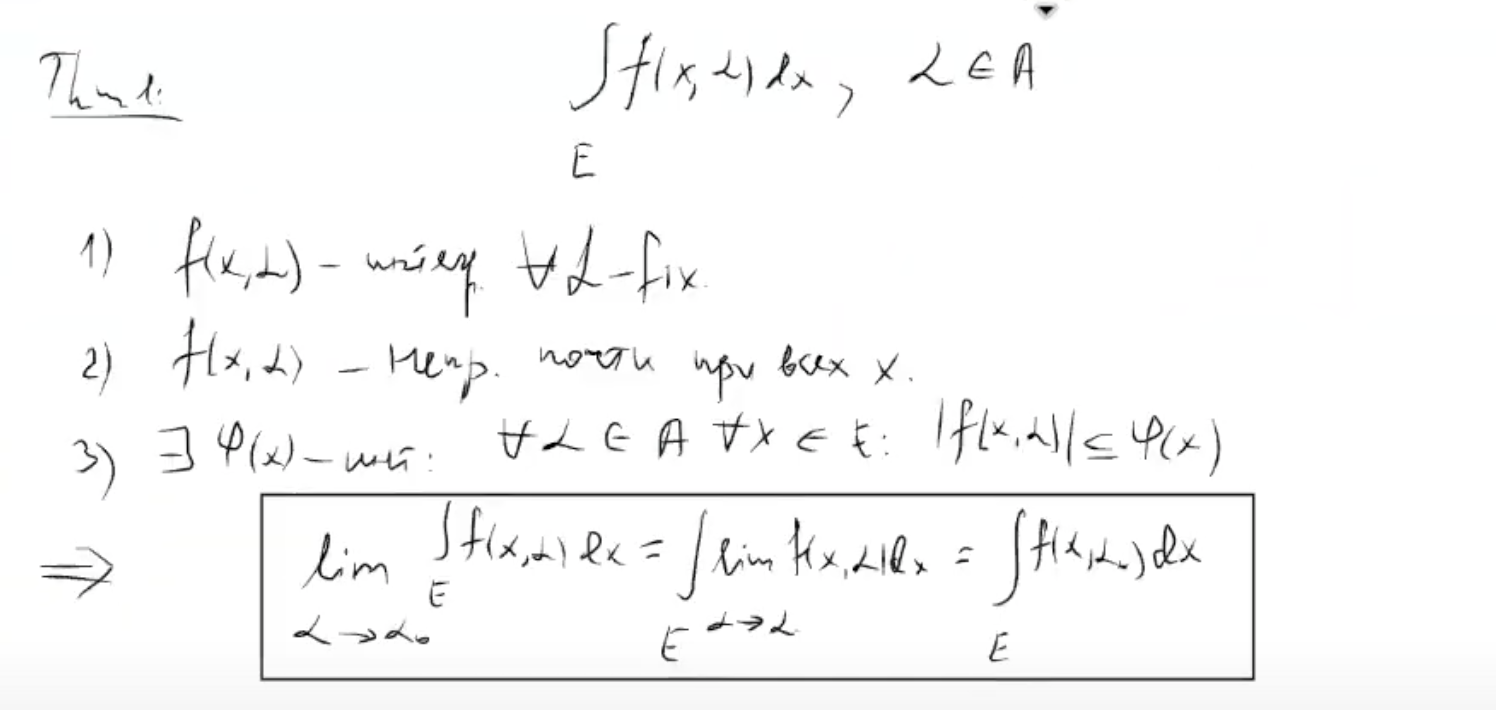 Thm 1:
∫_E f(x,α) dx, α ∈ A
1) f(x,α) – ∀α – fix.
2) f(x,α) – непр. почти при всех x.
3) ∃ φ(x) – : ∀α ∈ A ∀x ∈ E: |f(x,α)| ≤ φ(x)
⇒ lim_{α→α₀} ∫_E f(x,α) dx = ∫_E lim_{α→α} f(x,α) dx = ∫_E f(x,α₀) dx